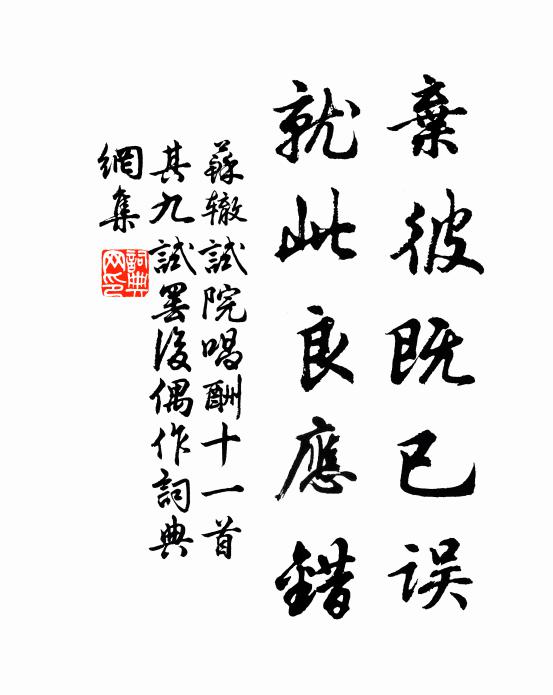 棄彼既已误
就此良應錯
蘇辙試院唱酬十一首
其九試罢後偶作詞典
網集
詞典網印